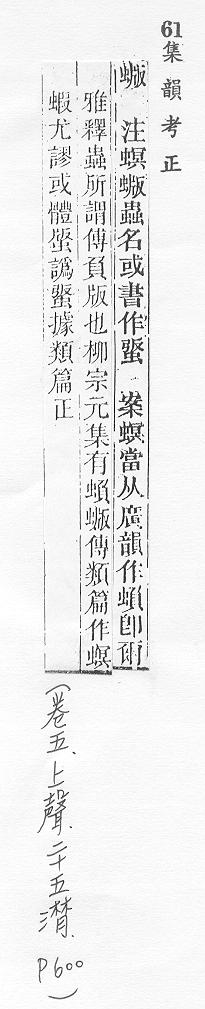 61集韻考正
蝂 注螟蝂蟲名或書作 案螟當从廣韻作蝜卽爾
雅釋蟲所謂傅負版也柳宗元集有蝜蝂傳類篇作螟
蝦尤謬或體譌據類篇正
(卷五、上聲、二十五潸、P600)